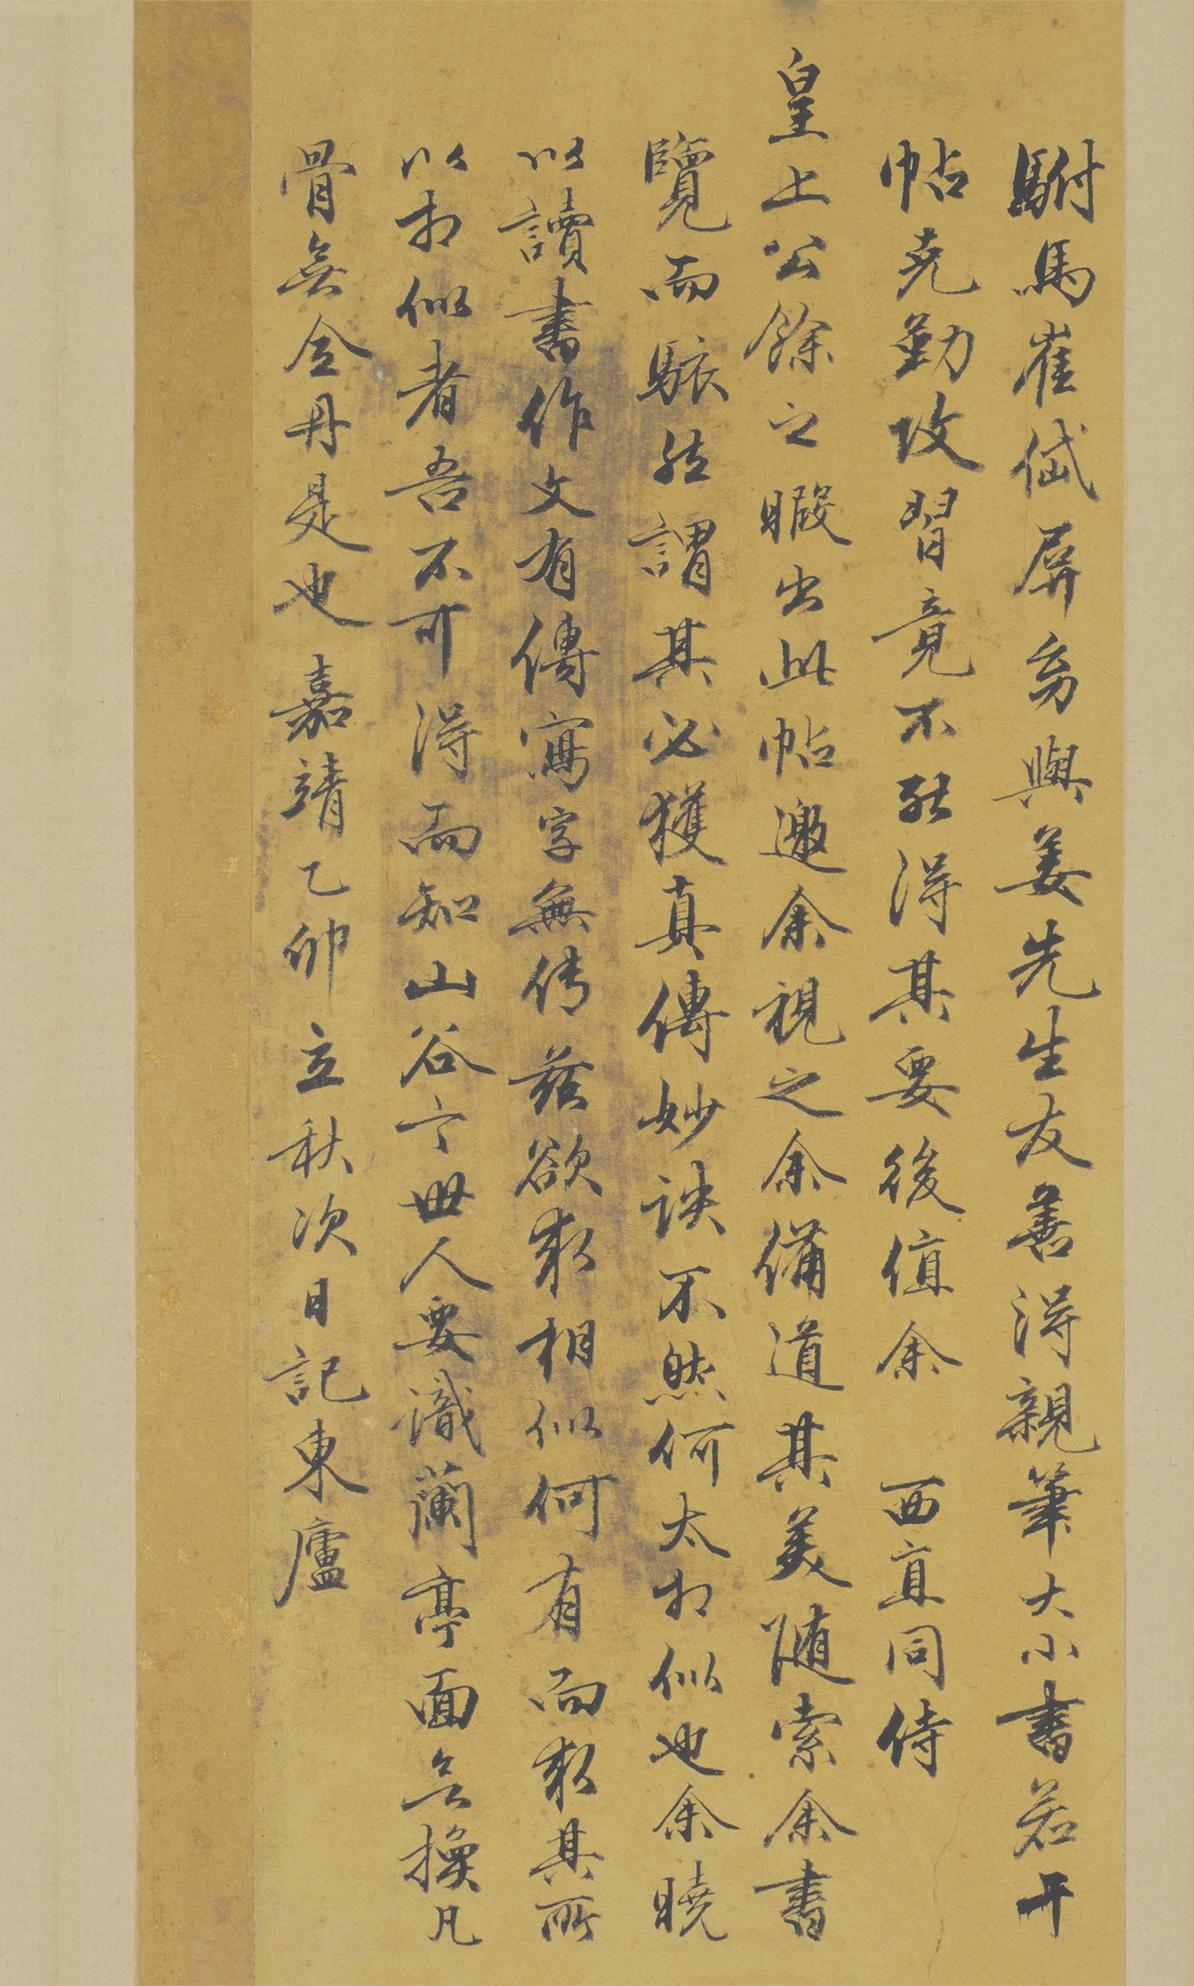 駙馬崔岱屏多與姜先生友善得親筆大小書若干
帖克勤攻習竟不能得其要後值余西直同侍
皇上公餘之暇出此帖邀余視之余備道其美随索余書
覽而駭然謂其必獲真傳妙訣不然何太相似也余曉
以讀書作文有傳寫字無传茲欲求相似何有而求其所
以相似者吾不可得而知山谷亡世人要識蘭亭面無換凡
骨無金丹是也嘉靖乙卯立秋次日記東廬